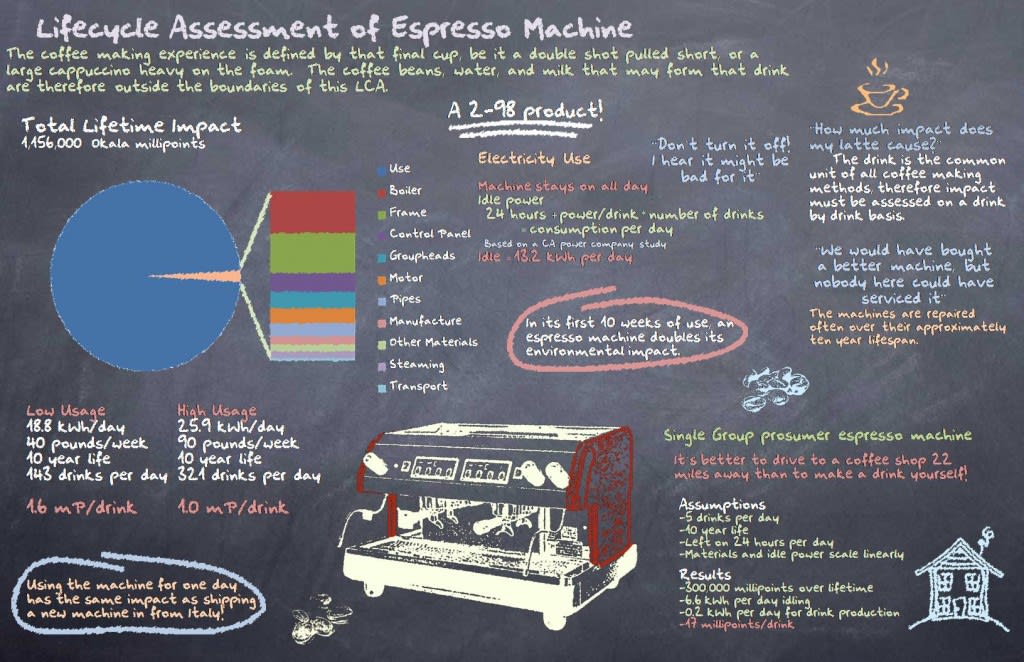 Lifecycle Assessment of Espresso Machine
The coffee making experience is defined by that final cup, be it a double shot pulled short, or a
large cappuccino heavy on the foam. The coffee beans, water, and milk that may form that drink
are therefore outside the boundaries of this LCA.
A 2-98 product!
Total Lifetime Impact
1,156,000 Okala millipoints
Use
Boiler
Frame
Control Panel
Groupheads
Motor
Pipes
Manufacture
Other Materials
Steaming
Transport
Electricity Use
Machine stays on all day
Idle power
24 hours + power/drink * number of drinks
= consumption per day
Based on a CA power company study
Idle = 13.2 kWh per day
"Don't turn it off!
I hear it might be
bad for it"
"How much impact does
my latte cause?"
The drink is the common
unit of all coffee making
methods, therefore impact
must be assessed on a drink
by drink basis.
"We would have bought
a better machine, but
nobody here could have
serviced it"
The machines are repaired
often over their approximately
ten year lifespan.
In its first 10 weeks of use, an
espresso machine doubles its
environmental impact.
Low Usage
18.8 kWh/day
40 pounds/week
10 year life
143 drinks per day
1.6 mP/drink
High Usage
25.9 kWh/day
90 pounds/week
10 year life
321 drinks per day
1.0 mP/drink
Using the machine for one day
has the same impact as shipping
a new machine in from Italy!
Single Group prosumer espresso machine
It's better to drive to a coffee shop 22
miles away than to make a drink yourself!
Assumptions
-5 drinks per day
-10 year life
-Left on 24 hours per day
-Materials and idle power scale linearly
Results
-300,000 millipoints over lifetime
-6.6 kWh per day idling
-0.2 kWh per day for drink production
-17 millipoints/drink